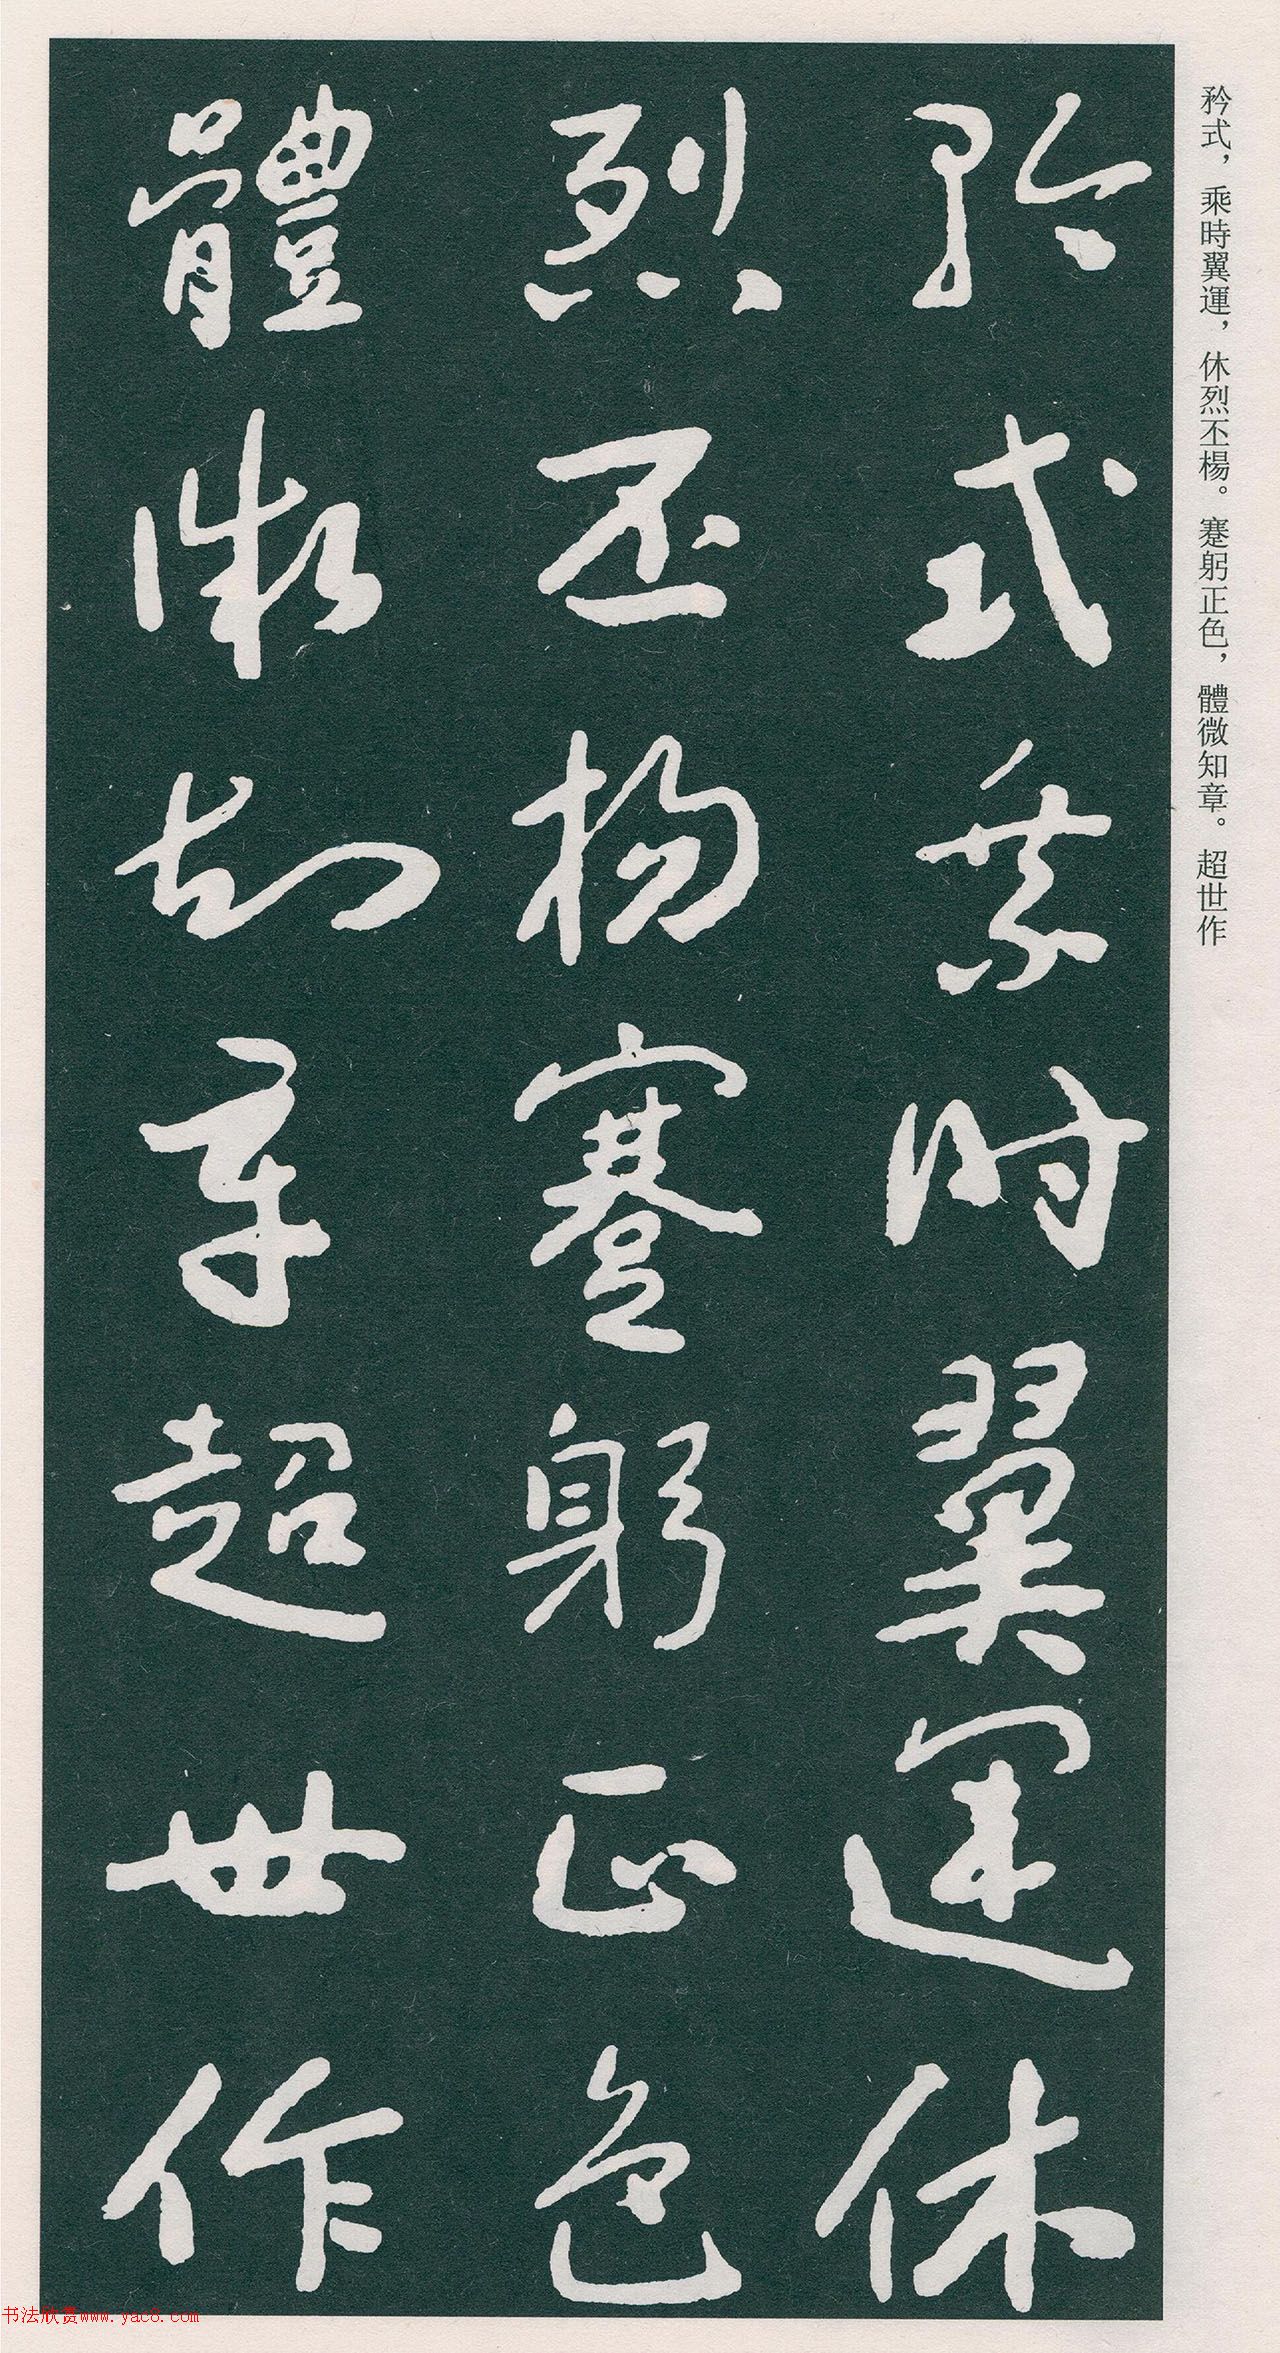 矜式，乘時翼運，休烈丕楊。蹇躬正色，體微知章。超世作
矜式乘时翼運休
烈丕楊蹇躬正色
體微知章超世作
书法欣赏www.yac8.com